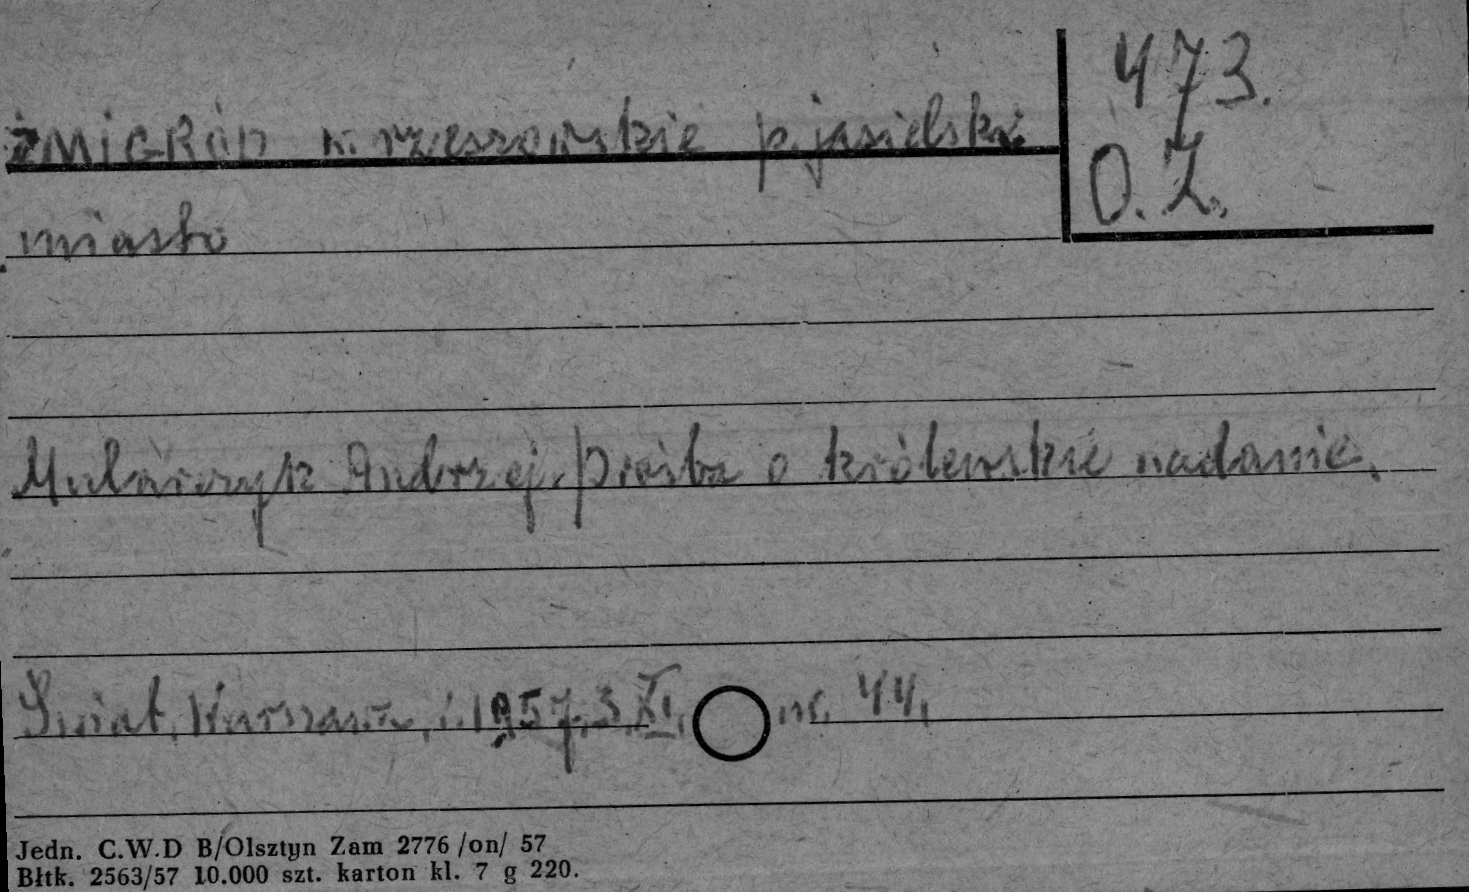 473.
O. Z.
ŻMIGRÓD w. rzeszowskie p. jasielski
miasto
Mularczyk Andrzej. Prośba o królewskie nadanie.
Świat, Warszawa, r. 1957, 3.XI, nr. 44.
Jedn. C.W.D B/Olsztyn Zam 2776 /on/ 57
Błtk. 2563/57 10.000 szt. karton kl. 7 g 220.